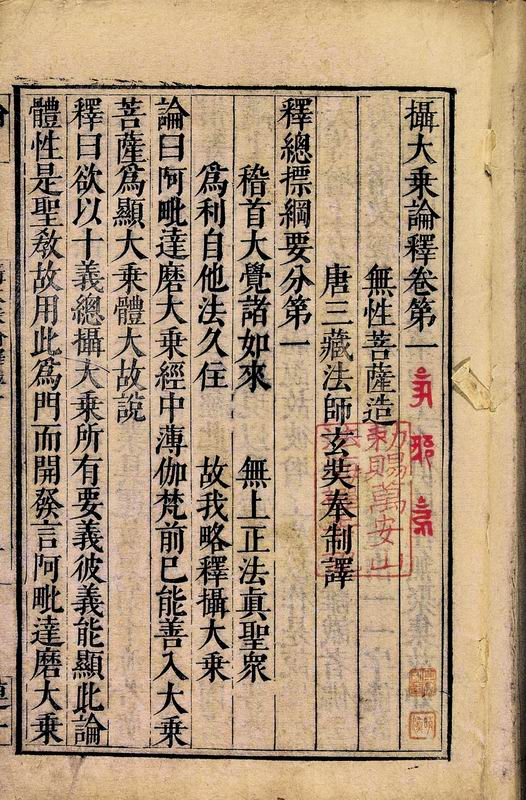 攝大乘論釋卷第一
無性菩薩造
唐三藏法師玄奘奉制譯
釋總摽綱要分第一
稽首大覺諸如來　無上正法眞聖衆
爲利自他法久住　故我略釋攝大乘
論曰阿毗達磨大乘經中薄伽梵前已能善入大乘
菩薩爲顯大乘體大故說
釋曰欲以十義總攝大乘所有要義彼義能顯此論
體性是聖教故用此爲門而開發言阿毗達磨大乘
勅賜萬安山